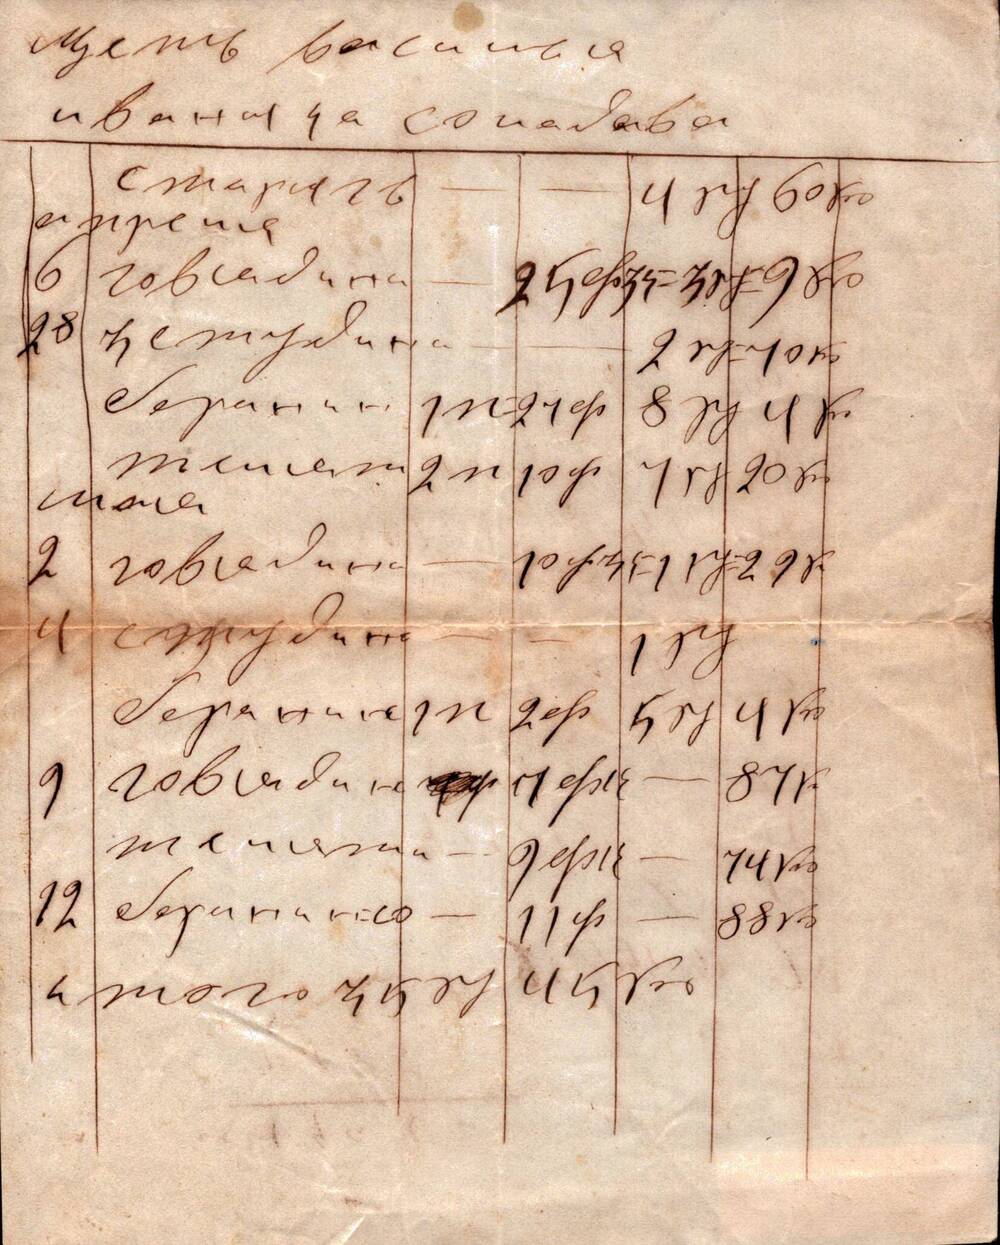 щетъ василья
иванича солабава
старегъ — — 4 ру 60 ко
апреля
6 говядина — 25ф 3/4 = 3 ру = 6 ко
28 3 студина — — 2 ру = 40 ко
баранин 1п = 24ф 8 ру 4 ко
телят 2п 10ф 7 ру 20 ко
мая
2 говядина — 10ф 3/4 1 ру = 26 к
4 студина — — 1 ру
баранине 1п 2ф 5 ру 4 ко
9 говядин 7ф — 87к
теляти — 9ф — 74 ко
12 баранинаю — 11ф — 88 ко
итого 35 ру 45 ко